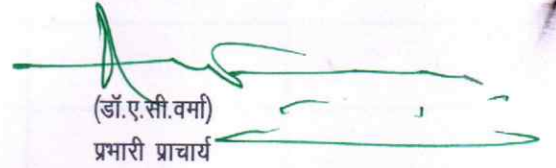 (डॉ.ए.सी.वर्मा)
प्रभारी प्राचार्य